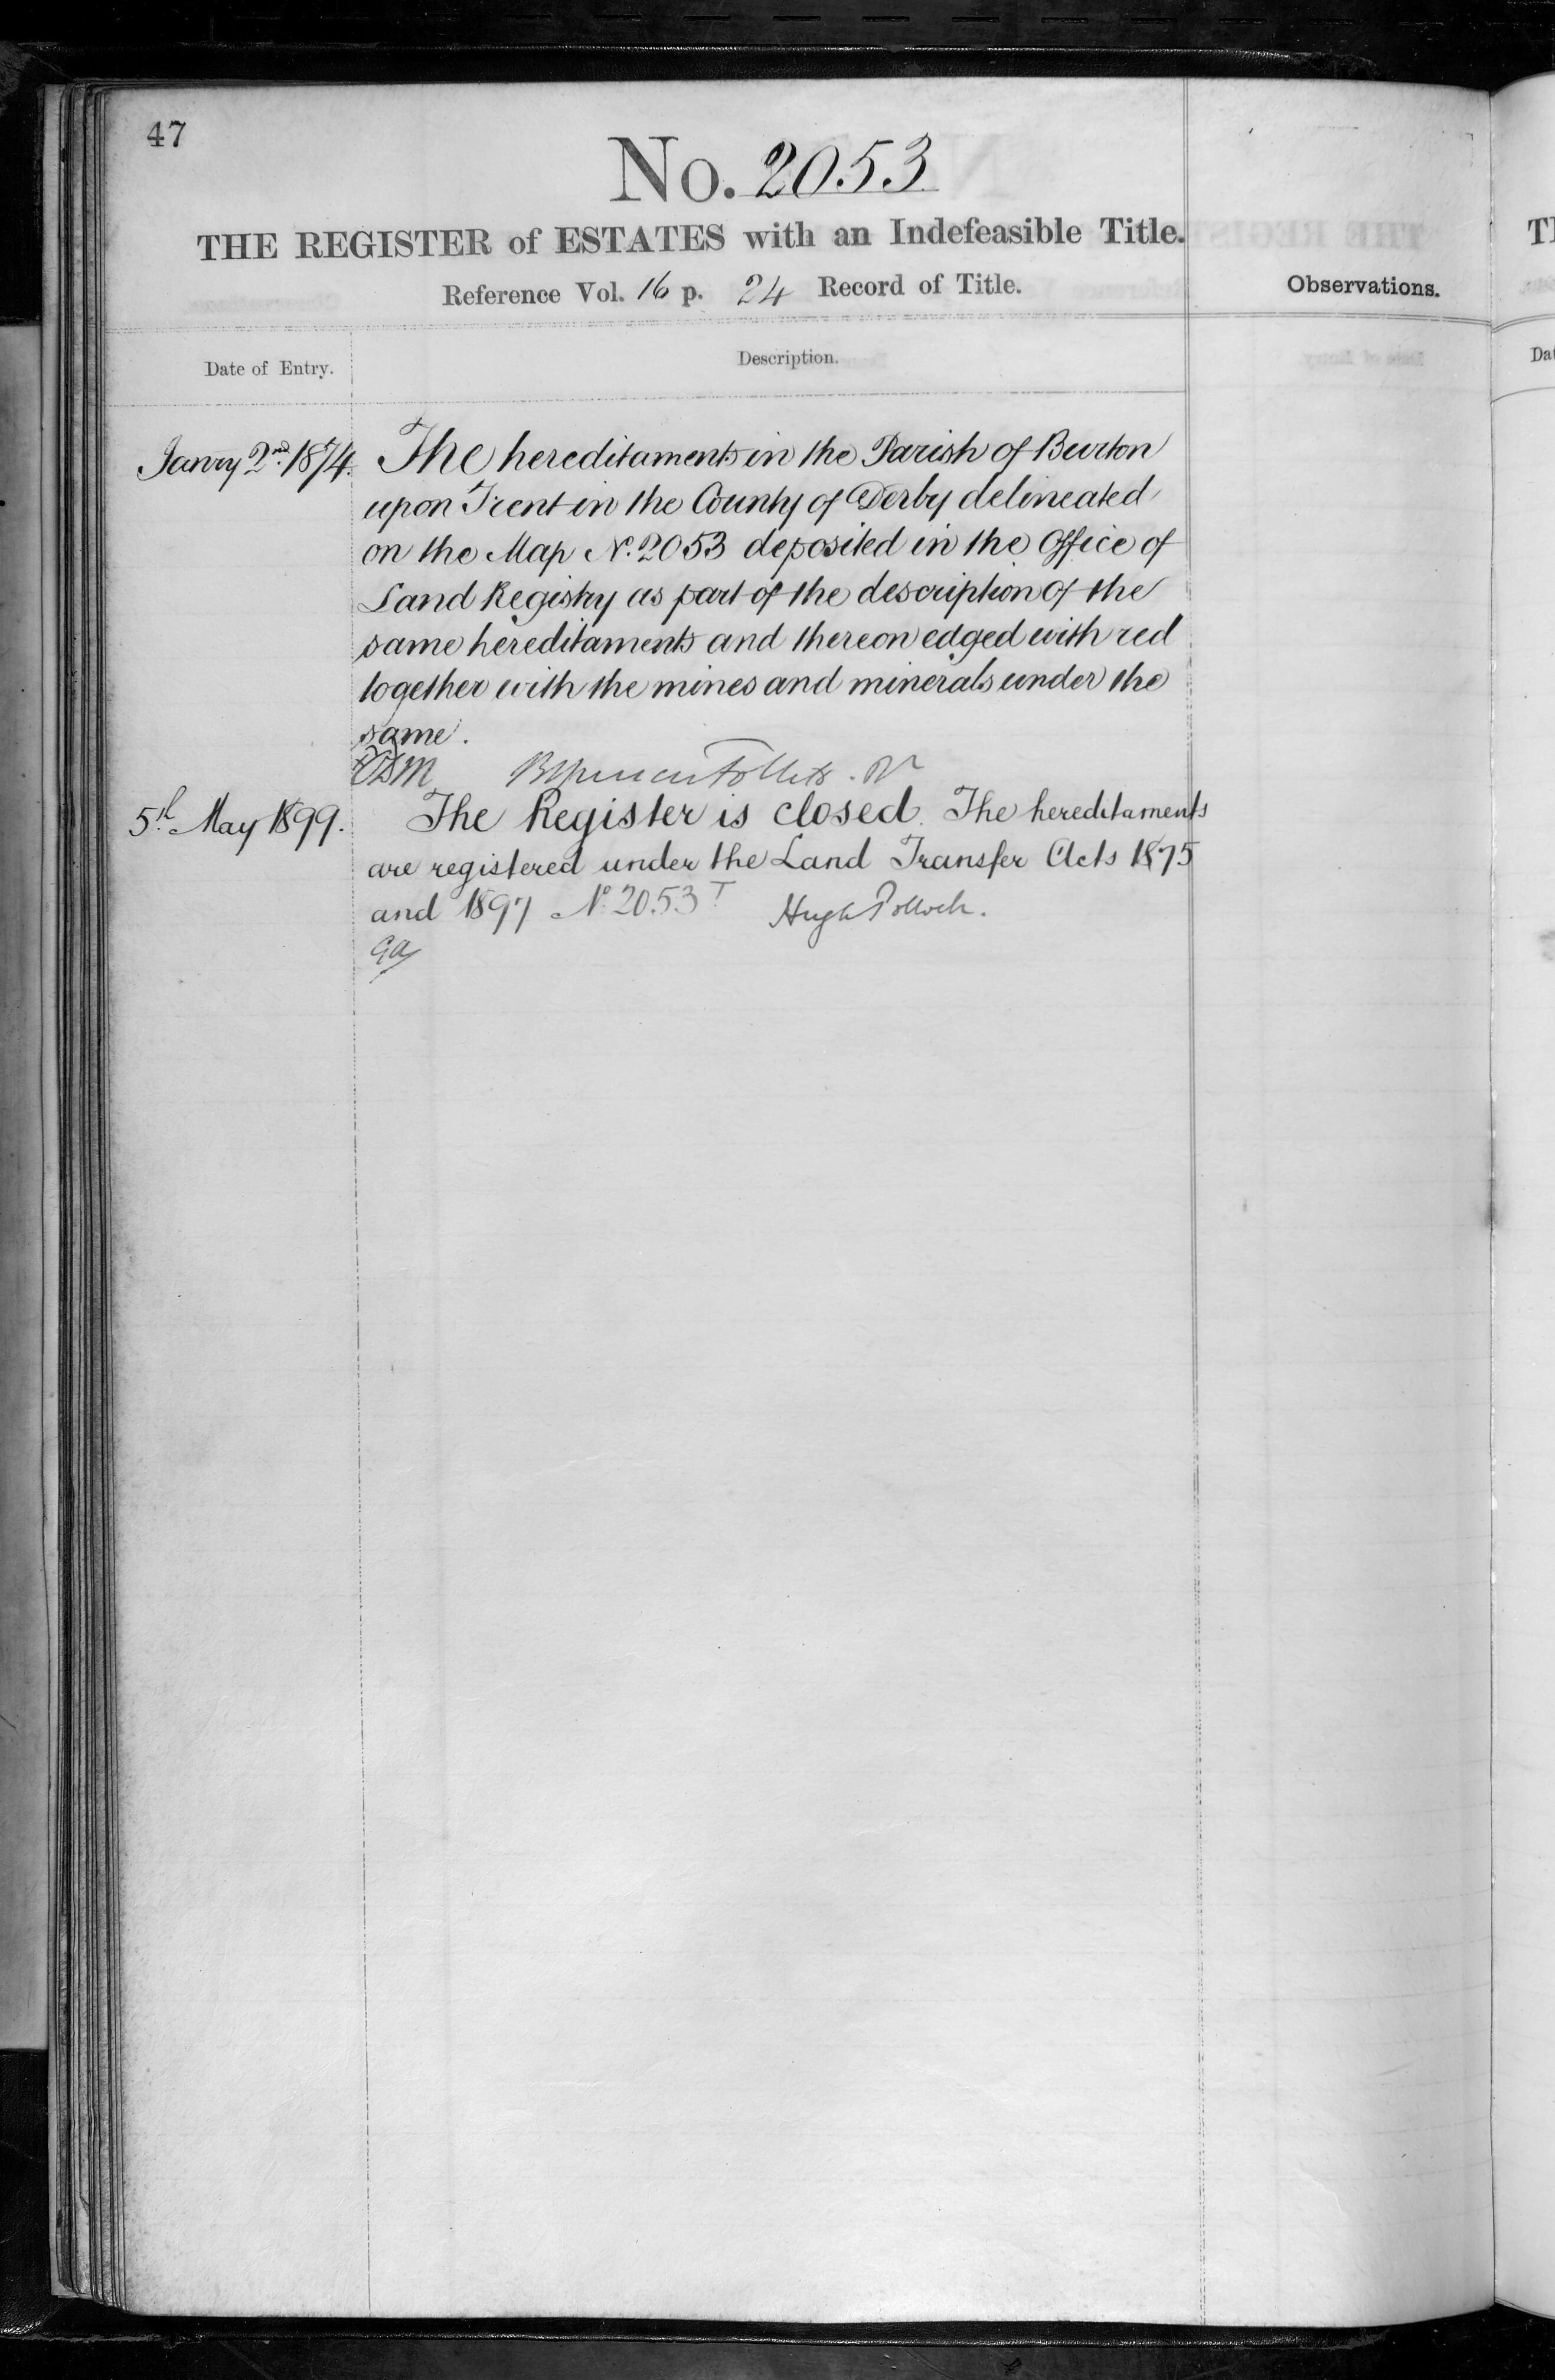 47
No. 2053
THE REGISTER of ESTATES with an Indefeasible Title.
Reference Vol. 16 p. 24 Record of Title.
Observations.
Date of Entry.
Description.
Janry 2nd. 1874. The hereditaments in the Parish of Burton
upon Trent in the County of Derby delineated
on the Map No. 2053 deposited in the Office of
Land Registry as part of the description of the
same hereditaments and thereon edged with red
together with the mines and minerals under the
same.
5th May 1899. The Register is closed. The hereditaments
are registered under the Land Transfer Acts 1875
and 1897 No. 2053 T Hugh Pollock.